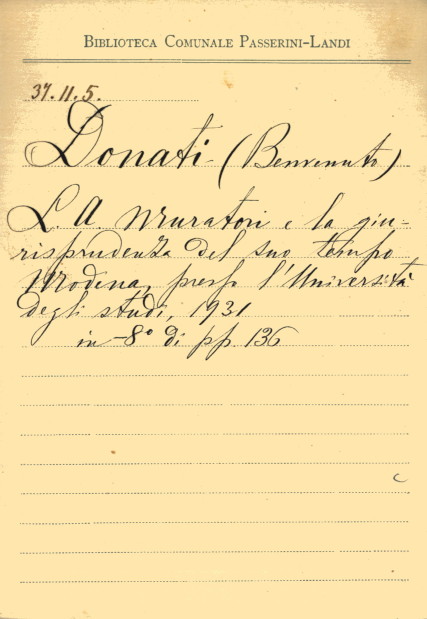 BIBLIOTECA COMUNALE PASSERINI-LANDI
37.11.5.
Donati (Benvenuto)
L. A Muratori e la giu-
risprudenza del suo tempo
Modena, presso l'Università
degli studi, 1931
in-8° di pp. 136